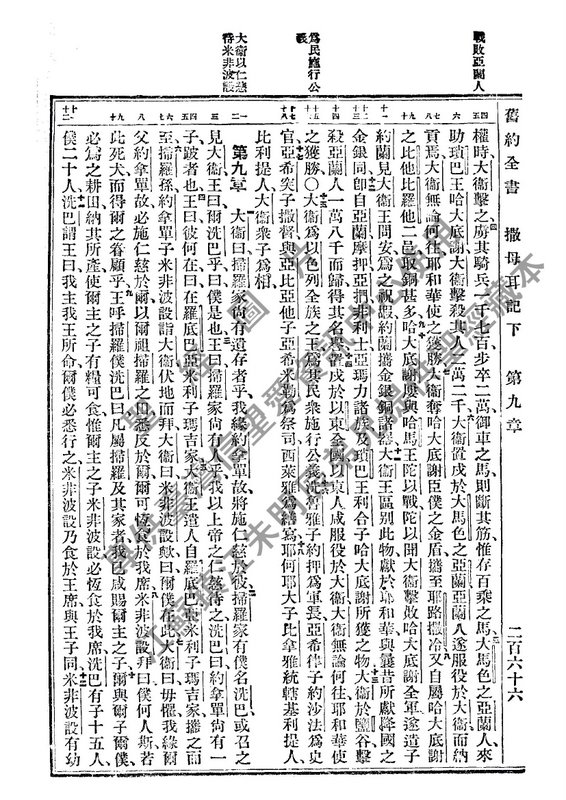 戰敗亞蘭人
為民施行公義
大衛以仁慈待米非波設
舊約全書 撒母耳記下 第九章 二百六十六
權時大衛擊之虜其騎兵一千七百步卒二萬御車之馬則斷其筋惟存百乘之馬大馬色之亞蘭人來
助瑣巴王哈大底謝大衛擊殺其人二萬二千大衛置戍於大馬色之亞蘭亞蘭人遂服役於大衛而納
貢焉大衛無論何往耶和華使之獲勝大衛奪哈大底謝臣僕之金盾攜至耶路撒冷又自屬哈大底謝
之比他比羅他二邑取銅甚多哈大底謝屢與哈馬王陀以戰陀以聞大衛擊敗哈大底謝全軍遂遣子
約蘭見大衛王問安為之祝嘏約蘭攜金銀銅諸器大衛王區別此物獻於耶和華與曩昔所獻降國之
金銀同即自亞蘭摩押亞捫非利士亞瑪力諸族及瑣巴王利合子哈大底謝所獲之物大衛於鹽谷擊
殺亞蘭人一萬八千而歸得其名譽置戍於以東全國以東人咸服役於大衛大衛無論何往耶和華使
之獲勝○大衛為以色列全族之王為其民眾施行公義洗魯雅子約押為軍長亞希律子約沙法為史
官亞希突子撒督與亞比亞他子亞希米勒為祭司西萊雅為繕寫耶何耶大子比拿雅統轄基利提人
比利提人大衛眾子為相
第九章 大衛曰掃羅家尚有遺存者乎我緣約拿單故將施仁慈於彼掃羅家有僕名洗巴或召之
見大衛王曰爾洗巴乎曰僕是也王曰掃羅家尚有人乎我以上帝之仁慈待之洗巴曰約拿單尚有一
子跛者也王曰彼何在曰在羅底巴亞米利子瑪吉家大衛王遣人自羅底巴亞米利子瑪吉家攜之而
至掃羅孫約拿單子米非波設詣大衛伏地而拜大衛曰米非波設歟曰爾僕在此大衛曰毋懼我緣爾
父約拿單故必施仁慈於爾以爾祖掃羅之田悉反於爾爾可恆食於我席米非波設拜曰僕何人斯若
此死犬而得爾之眷顧乎王呼掃羅僕洗巴曰凡屬掃羅及其家者我已咸賜爾主之子爾與爾子爾僕
必為之耕田納其所產使爾主之子有糧可食惟爾主之子米非波設必恆食於我席洗巴有子十五人
僕二十人洗巴謂王曰我主我王所命爾僕必悉行之米非波設乃食於王席與王子同米非波設有幼